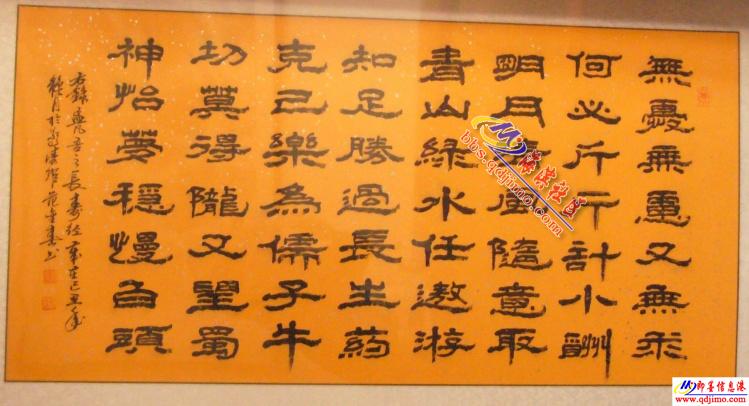 無憂無慮又無求
何必斤斤計小酬
明月清風隨意取
青山綠水任遨游
知足勝過長生药
克己樂為儒子牛
切莫得隴又望蜀
神怡夢穩慢白頭
右錄 之長壽經 歲在己丑年
bbs.qdjimo.com
即墨信息港
www.qdjimo.com